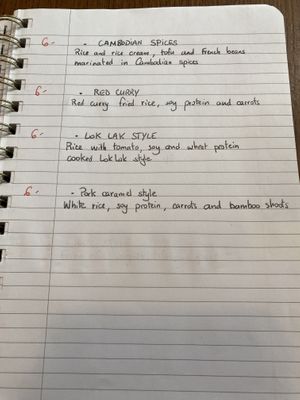 6- • CAMBODIAN SPICES
Rice and rice cream, tofu and french beans
marinated in Cambodian spices
6- • RED CURRY
Red curry fried rice, soy protein and carrots
6- • LOK LAK STYLE
Rice with tomato, soy and wheat protein
cooked Lok Lak style
6- • Pork caramel style
White rice, soy protein, carrots and bamboo shoots